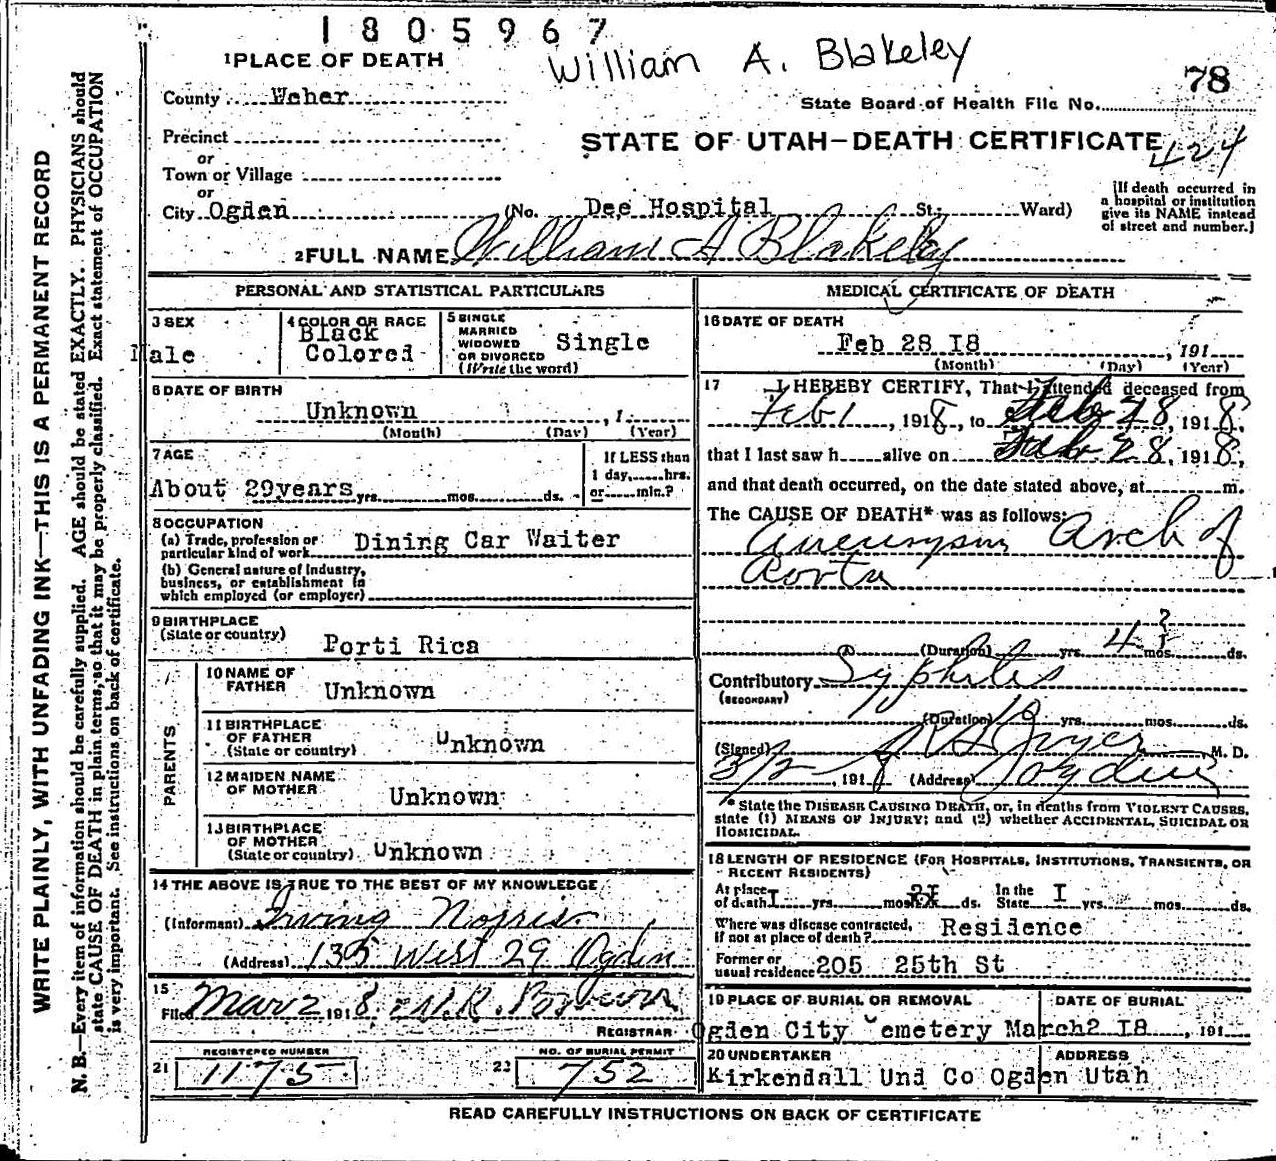 1805967
William A. Blakeley
78
1 PLACE OF DEATH
County Weber
State Board of Health File No.
Precinct
STATE OF UTAH—DEATH CERTIFICATE
424
or
Town or Village
or
City Ogden (No. Dee Hospital St; Ward)
[If death occurred in a hospital or institution give its NAME instead of street and number.]
2 FULL NAME William A Blakeley
PERSONAL AND STATISTICAL PARTICULARS
3 SEX
Male
4 COLOR OR RACE
Black
Colored
5 SINGLE
MARRIED
WIDOWED
OR DIVORCED
(Write the word)
Single
6 DATE OF BIRTH
Unknown , 1
(Month) (Day) (Year)
7 AGE
About 29years yrs. mos. ds.
If LESS than
1 day, hrs.
or min.?
8 OCCUPATION
(a) Trade, profession or
particular kind of work Dining Car Waiter
(b) General nature of Industry,
business, or establishment in
which employed (or employer)
9 BIRTHPLACE
(State or country) Porti Rica
PARENTS
10 NAME OF
FATHER Unknown
11 BIRTHPLACE
OF FATHER
(State or country) Unknown
12 MAIDEN NAME
OF MOTHER Unknown
13 BIRTHPLACE
OF MOTHER
(State or country) Unknown
14 THE ABOVE IS TRUE TO THE BEST OF MY KNOWLEDGE
(Informant) Irving Norris
(Address) 135 West 29 Ogden
15
Filed Mar 2 1918
REGISTRAR
REGISTERED NUMBER
21 1175
NO. OF BURIAL PERMIT
22 752
MEDICAL CERTIFICATE OF DEATH
16 DATE OF DEATH
Feb 28 18 , 191
(Month) (Day) (Year)
17 I HEREBY CERTIFY, That I attended deceased from
Feb 1, 1918, to Feb 28, 1918,
that I last saw h alive on Feb 28, 1918,
and that death occurred, on the date stated above, at m.
The CAUSE OF DEATH* was as follows:
Aneurysm Arch of
Aorta
?
(Duration) yrs. 4 mos. ds.
Contributory Syphilis
(SECONDARY)
(Duration) yrs. mos. ds.
(Signed) M. D.
3/2, 1918 (Address) Ogden
* State the DISEASE CAUSING DEATH, or, in deaths from VIOLENT CAUSES,
state (1) MEANS OF INJURY; and (2) whether ACCIDENTAL, SUICIDAL OR
HOMICIDAL.
18 LENGTH OF RESIDENCE (FOR HOSPITALS, INSTITUTIONS, TRANSIENTS, OR
RECENT RESIDENTS)
At place
of death I yrs. mos. 21 ds.
In the
State I yrs. mos. ds.
Where was disease contracted,
if not at place of death? Residence
Former or
usual residence 205 25th St
19 PLACE OF BURIAL OR REMOVAL
DATE OF BURIAL
Ogden City Cemetery March2 18 , 191
20 UNDERTAKER
ADDRESS
Kirkendall Und Co Ogden Utah
READ CAREFULLY INSTRUCTIONS ON BACK OF CERTIFICATE
WRITE PLAINLY, WITH UNFADING INK—THIS IS A PERMANENT RECORD
N. B.—Every item of information should be carefully supplied. AGE should be stated EXACTLY. PHYSICIANS should
state CAUSE OF DEATH in plain terms, so that it may be properly classified. Exact statement of OCCUPATION
is very important. See instructions on back of certificate.